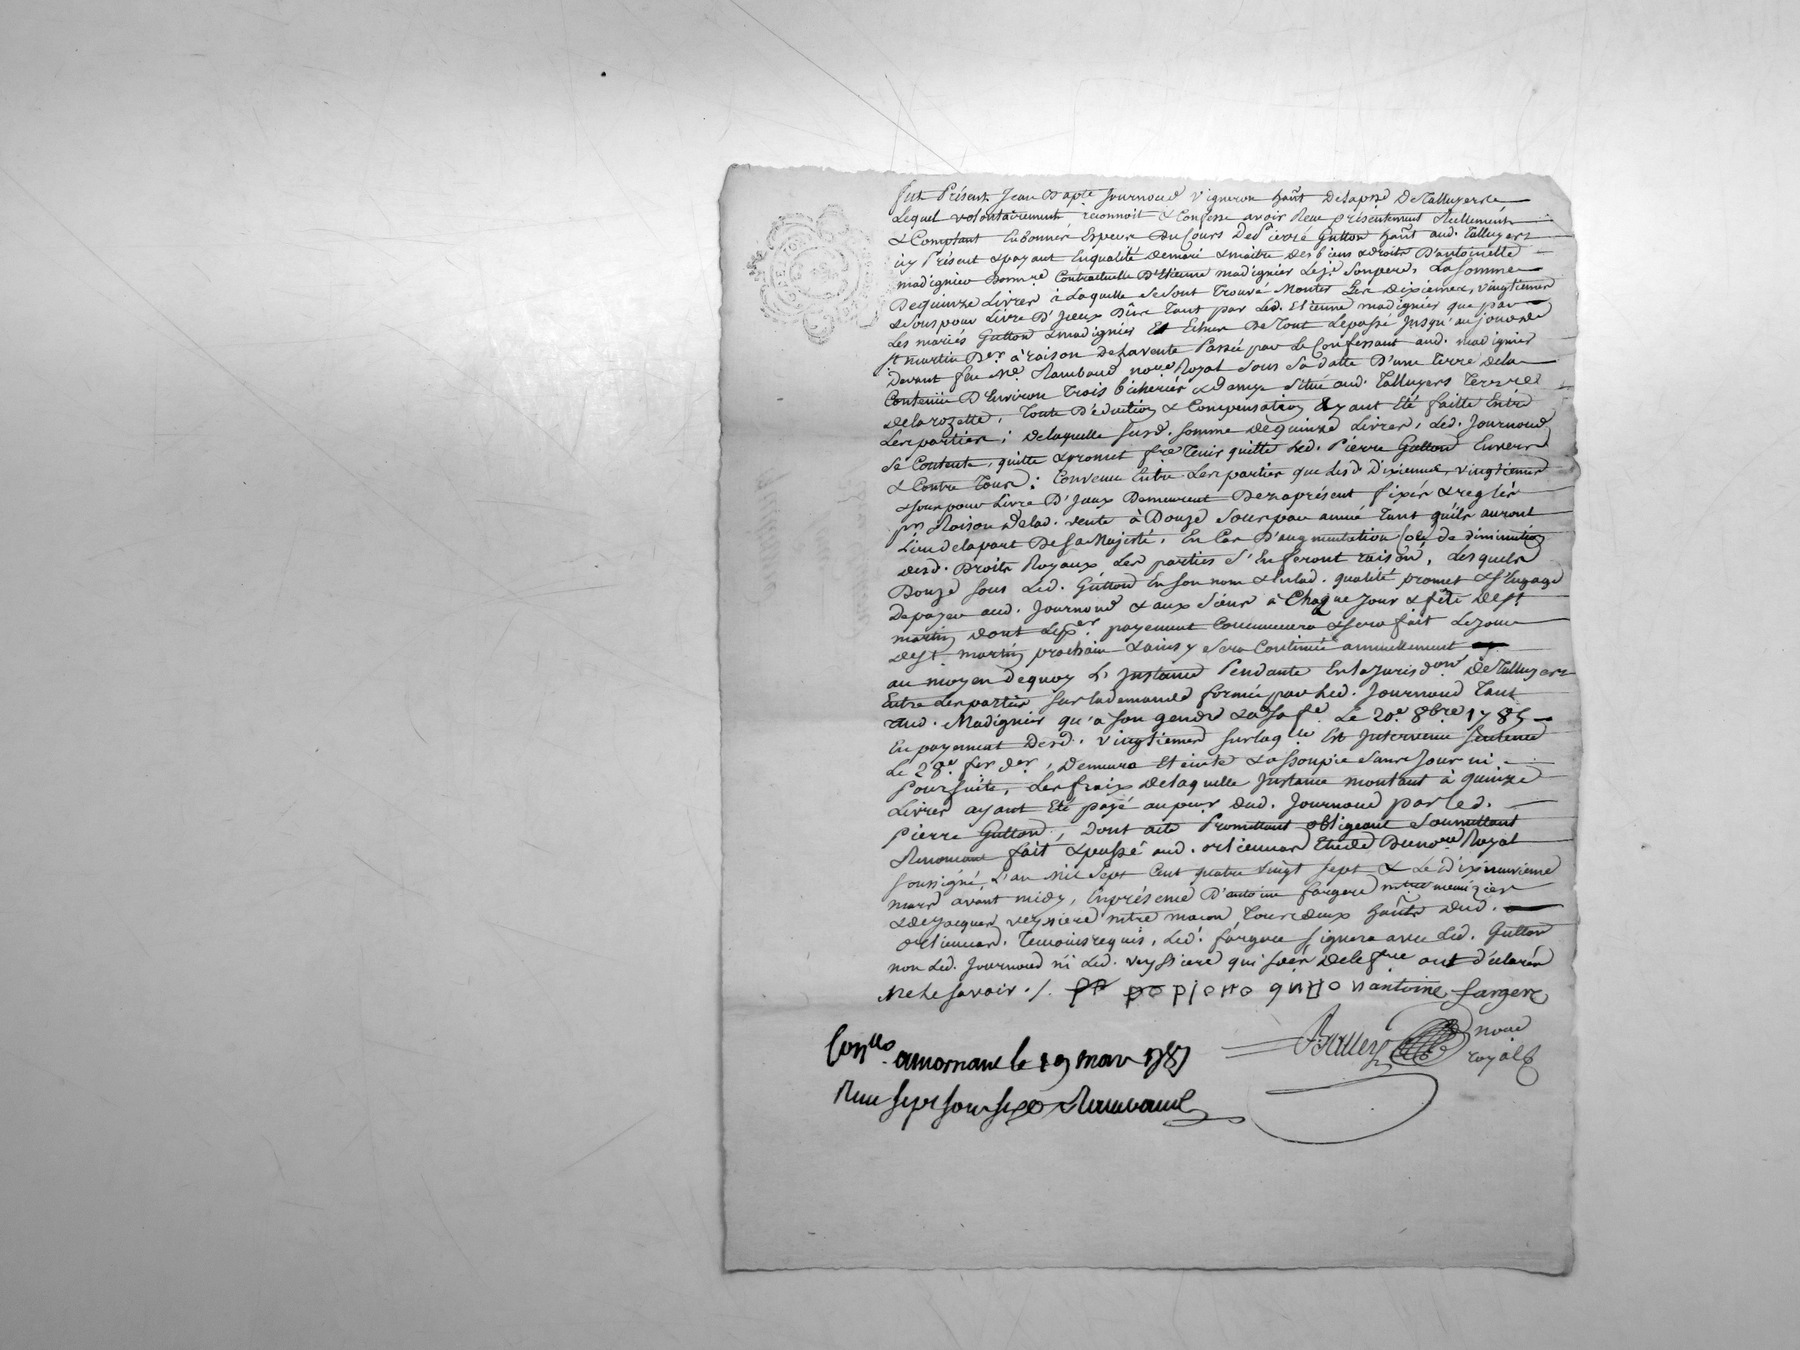 fut Présent Jean Bapte Journoud Vigneron hãnt Delapsse De Talluyers
Lequel volontairement reconnoit & Confesse avoir Reçu présentement Réellement
& Comptant En bonnes Espèces Du Cours De Sr Pierre Gutton hãnt aud. Talluyers
icy Présent & payant En qualité De mari & maitre Des biens & droits D'antoinette
madignier Contractuelle D'Etienne madignier Son pere, La Somme
De quinze Livres à Laquelle Se Sont trouvé Monter Les Dixiemes, vingtiemes
& Sous pour Livre D'Iceux Dûs tant par Led. Etienne madignier que par
Les mariés Gutton & madignier Et Echus De tout Le passé Jusqu'au jour de
St martin Der à raison De La vente Passée par Le Confessant aud. madignier
Devant feu Me Rambaud nore Royal Sous Sa datte D'une terre De la
Contenüe D'Environ trois bicherées Située aud. Talluyers terre
De la rozette, toute Déduction & Compensation Ayant Eté faitte Entre
Les parties; De laquelle Susd. Somme De quinze Livres, Led. Journoud
Se Contente, quitte & promet fre tenir quitte Led. Pierre Gutton Envers
& Contre tous; Convenu Entre Les parties que Lesd. Dixiemes, vingtiemes
& Sous pour Livre D'Iceux Demeurent Dez a présent fixés & reglés
pr Raison De lad. vente à Douze Sous par année tant qu'ils auront
Lieu De la part De Sa Majesté, En Cas D'augmentation ou de diminution
Desd. Droits Royaux Les parties S'En feront raison, Lesquels
Douze Sous Led. Gutton En Son nom & En lad. qualité promet & S'Engage
De payer aud. Journoud & aux Siens à Chaque Jour & fête De St
martin, Dont Le Per payement Commencera & Sera fait Le Jour
De St martin prochain & ainsy Sera Continué annuellement
au moyen De quoy L'Instance Pendante En la Jurisdon De Talluyers
Entre Les parties Sur la demande formée par Led. Journoud tant
aud. Madignier qu'a Son gendre & a Sa fe Le 20e 8bre 1785
En payement Desd. vingtiemes Sur laqlle Est Intervenu Sentence
Le 28e fer der, Demeura Eteinte & assoupie Sans Jour ni
Poursuite, Les fraix De laquelle Instance montant à quinze
Livres ayant Eté payé Dud. Journoud par Led.
Pierre Gutton, Dont acte Promettant obligeant Soumettant
Renonçant fait & passé aud. orlienas Etude Du nore Royal
Soussigné, L'an Mil Sept Cent quatre vingt Sept & Le dixneuvieme
mars avant midy, En présence D'antoine fargere mtre menuizier
& De Jacques veyssiere mtre maçon tous deux hãnts Dud.
orlienas, temoins requis, Led. fargere Signera avec Led. Gutton
non Led. Journoud ni Led. veyssiere qui Soèr De le fre ont déclarés
Ne Le Savoir ./. pierre gutton antoine fargere
nore
royal
Conllé a mornant le 19 mars 1787
Reçu Sept Sous Six d Rambaud